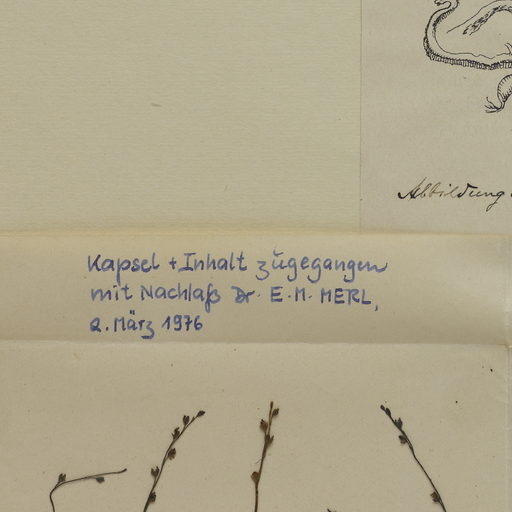 Abbildung
Kapsel + Inhalt zugegangen
mit Nachlaß Dr. E. M. MERL,
2. März 1976